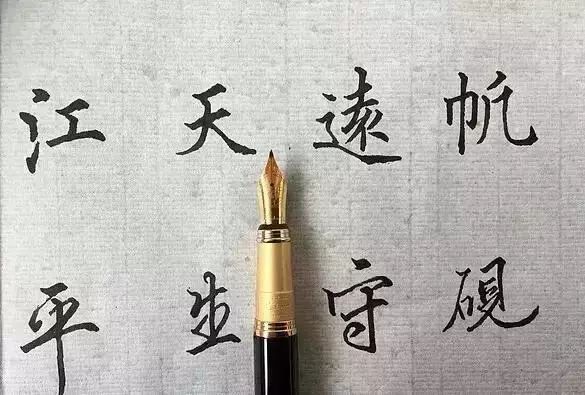 江天遠帆
平生守硯